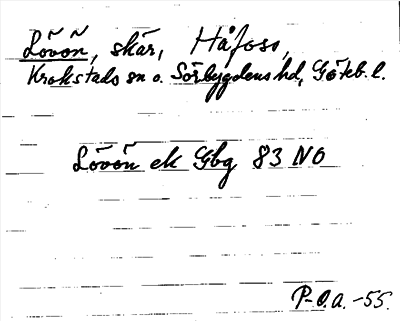 Lövön, skär, Håfoss,
Krokstads sn o. Sörbygdens hd, Göteb. l.
Lövön ek Gbg 83 NO
P-O.A. -55.